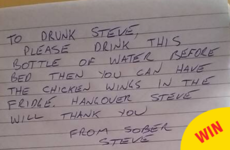 TO DRUNK STEVE,
PLEASE DRINK THIS
BOTTLE OF WATER BEFORE
BED THEN YOU CAN HAVE
THE CHICKEN WINGS IN THE
FRIDGE. HANGOVER STEVE
WILL THANK YOU
FROM SOBER
STEVE
WIN